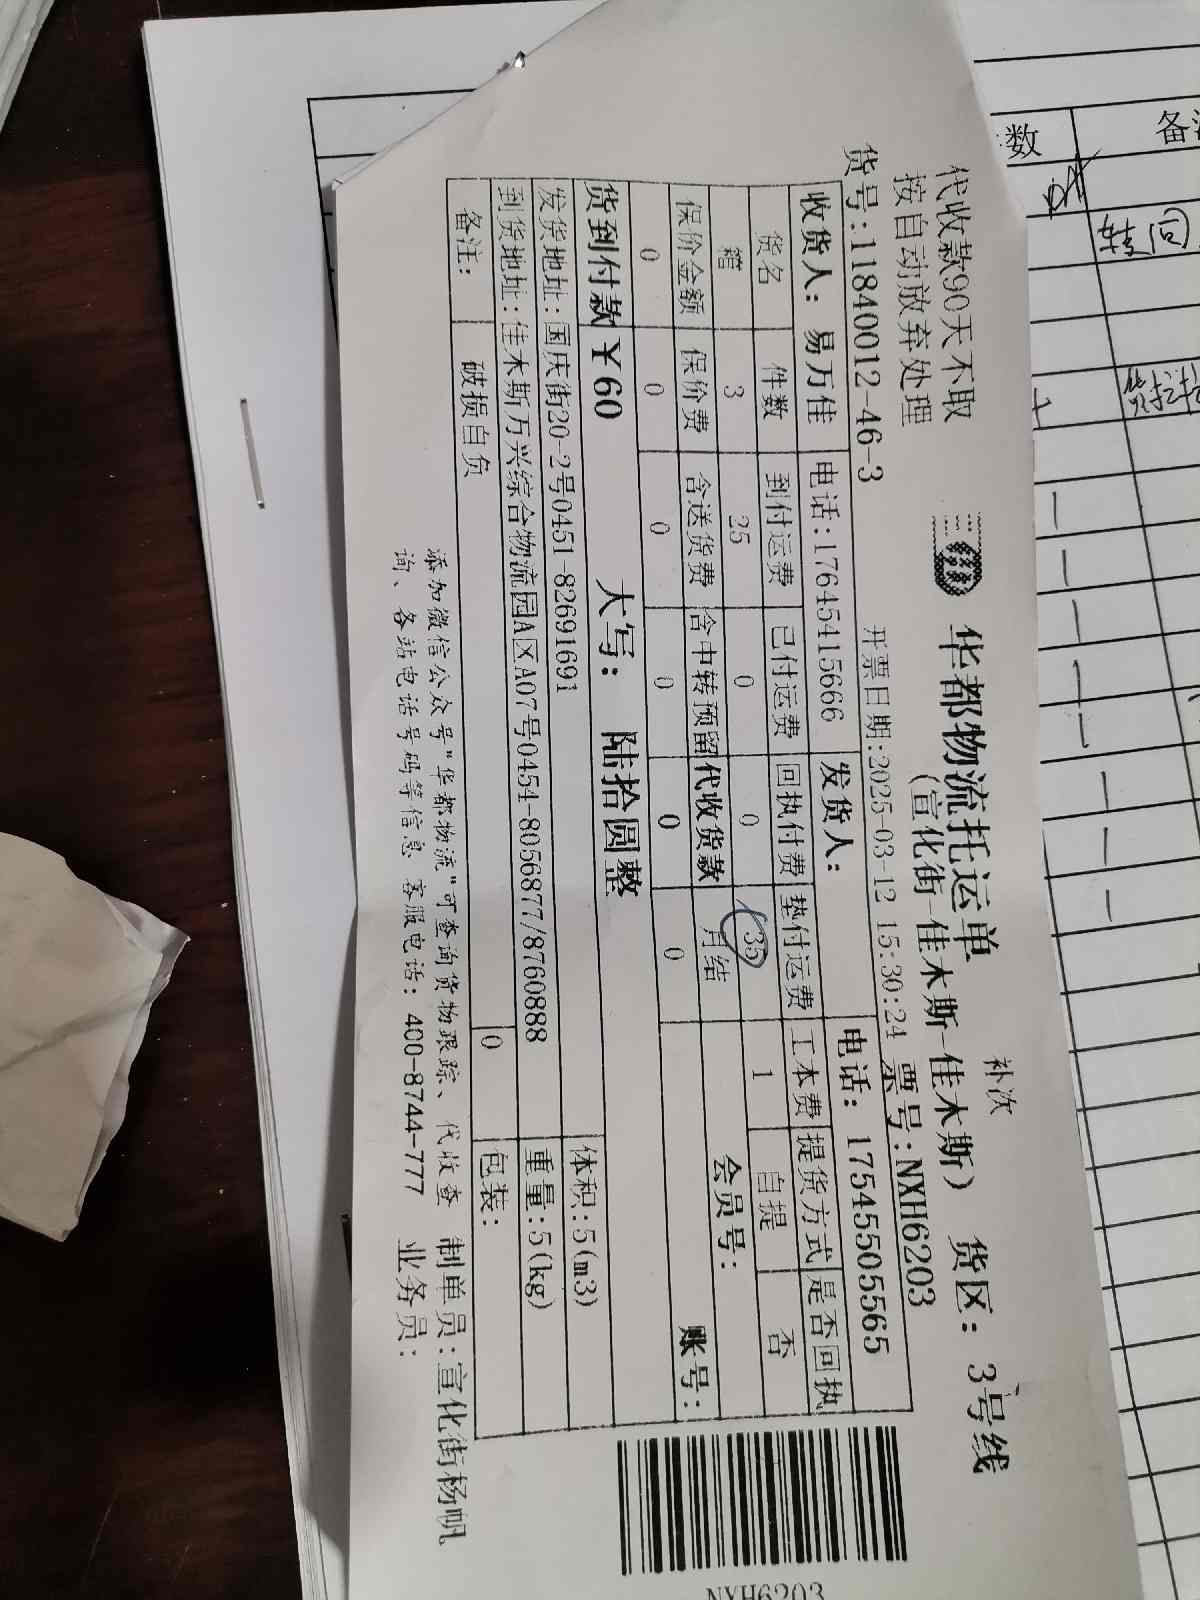 补次
代收款90天不取
按自动放弃处理
华都物流托运单
(宣化街-佳木斯-佳木斯)
货区: 3号线
货号:11840012-46-3
开票日期:2025-03-12 15:30:24
票号:NXH6203
收货人: 易万佳 电话:17645415666 发货人: 电话: 17545505565
货名 件数 到付运费 已付运费 回执付费 垫付运费 工本费 提货方式 是否回执
箱 3 25 0 0 35 1 自提 否
保价金额 保价费 含送货费 含中转预留 代收货款 月结 会员号:
0 0 0 0 0 0 账号:
货到付款￥60 大写: 陆拾圆整
发货地址:国庆街20-2号0451-82691691 体积:5(m3)
到货地址:佳木斯万兴综合物流园A区A07号0454-8056877/8760888 重量:5(kg)
备注: 破损自负 0 包装:
添加微信公众号"华都物流"可查询货物跟踪、代收查 制单员:宣化街杨帆
询、各站电话号码等信息 客服电话: 400-8744-777 业务员:
NXH6203
数
转回